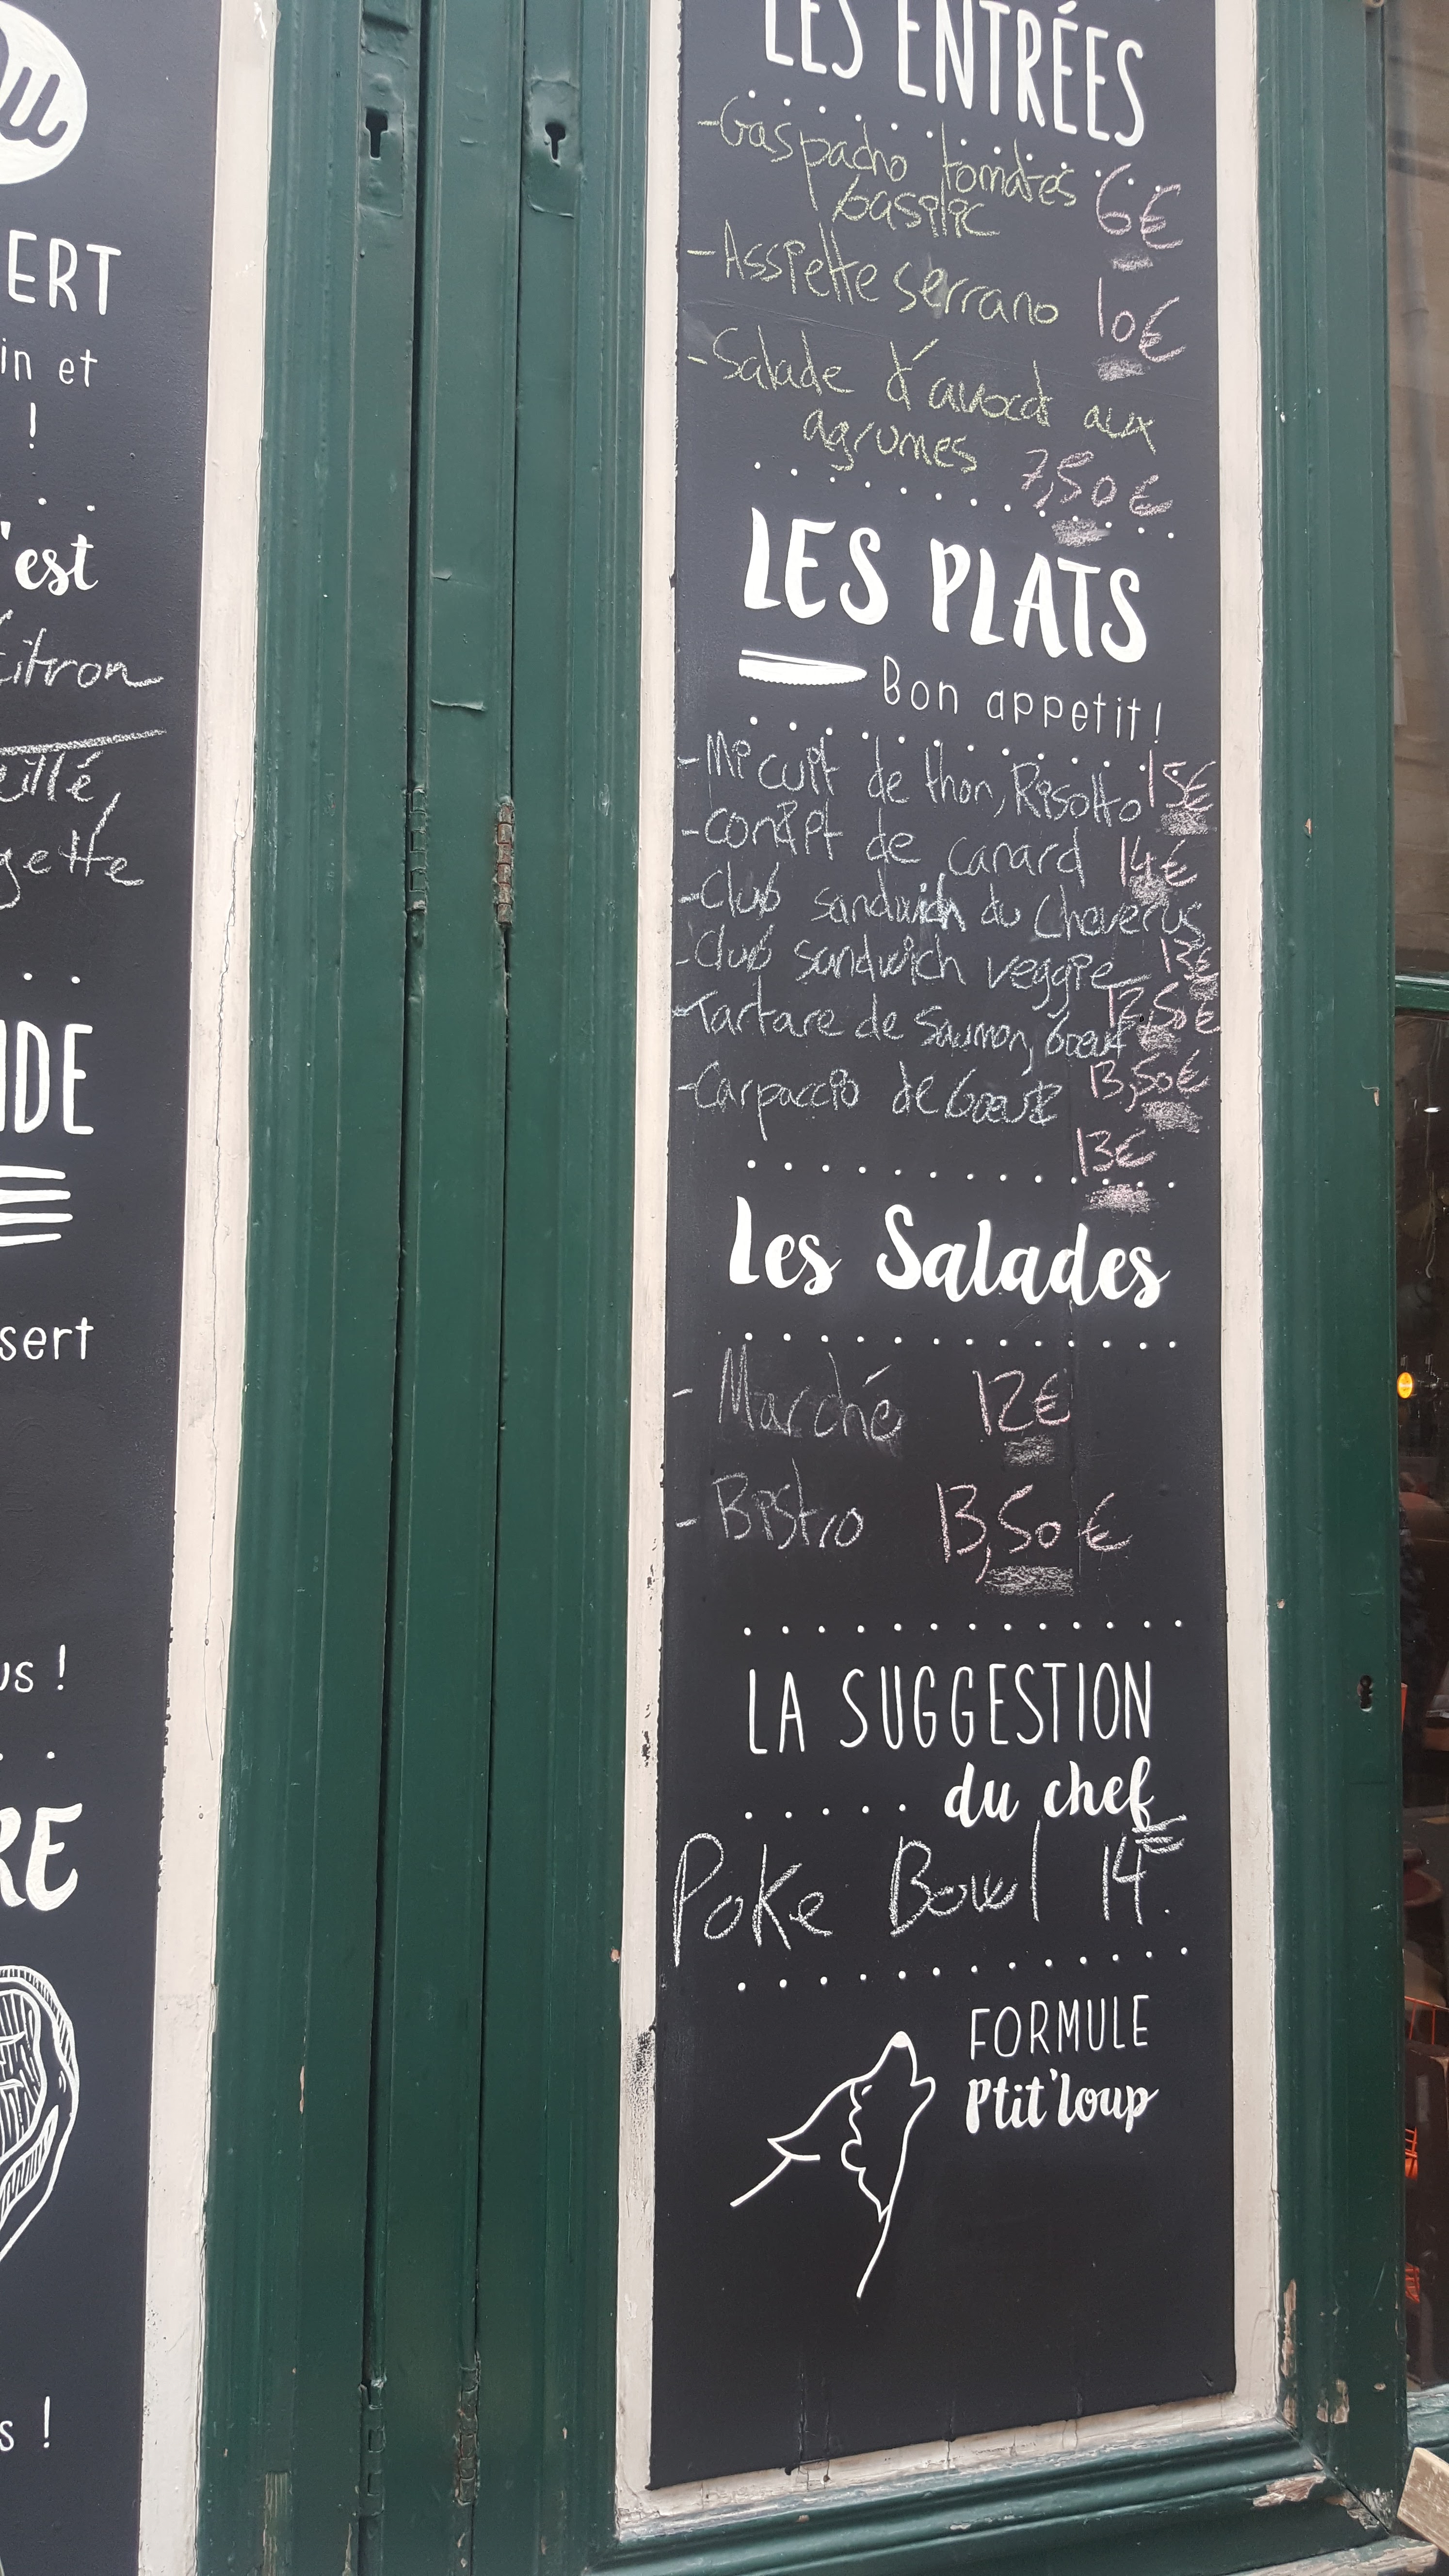 ERT
in et
!
'est
Citron
gette
IDE
sert
us !
RE
s !
LES ENTRÉES
-Gaspacho tomates
basilic 6€
-Asspiette serrano 10€
-Salade d'avocat aux
agrumes 7,50€
LES PLATS
Bon appetit!
-Mi cuit de thon, Risotto 15€
-confit de canard 14€
-Club sandwich du Chaverus
-Club sandwich veggie 13€
-Tartare de Saumon, boeuf 12,50€
-Carpaccio de boeuf 13,50€
13€
Les Salades
- Marché 12€
- Bistro 13,50€
LA SUGGESTION
du chef
Poke Bowl 14€.
FORMULE
Ptit'loup